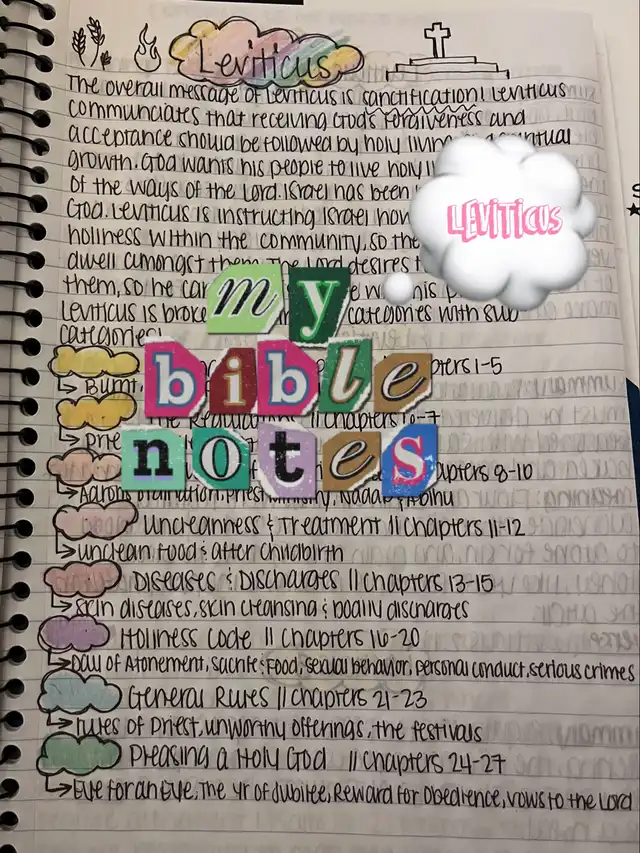 Leviticus
The overall message of Leviticus is sanctification! Leviticus
communciates that receiving God's Forgiveness and
acceptance should be followed by holy living
growth. God wants his people to live holy
LEVITICUS
of the ways of the Lord. Israel has been
God. Leviticus is instructing Israel how
holiness within the community, so the
dwell amongst them. The Lord desires
them, so he can
my
Leviticus is broke categories with sub
categories!
bible
notes
chapters 1-5
↳ Burnt,
The Regulations || chapters 6-7
↳
chapters 8-10
↳ Aarons Ordination, Priest Ministry, Nadab & Abihu
Uncleanness & Treatment || chapters 11-12
↳ unclean Food & After childbirth
Diseases & Discharges || chapters 13-15
↳ skin diseases, skin cleansing & bodily discharges
Holiness Code || Chapters 16-20
↳ Day of Atonement, sacrifice & Food, sexual behavior, personal conduct, serious crimes
General Rules || Chapters 21-23
↳ rules of Priest, unworthy offerings, the festivals
Pleasing a Holy God || Chapters 24-27
↳ Eye for an Eye, The yr of Jubilee, Reward for Obedience, vows to the Lord